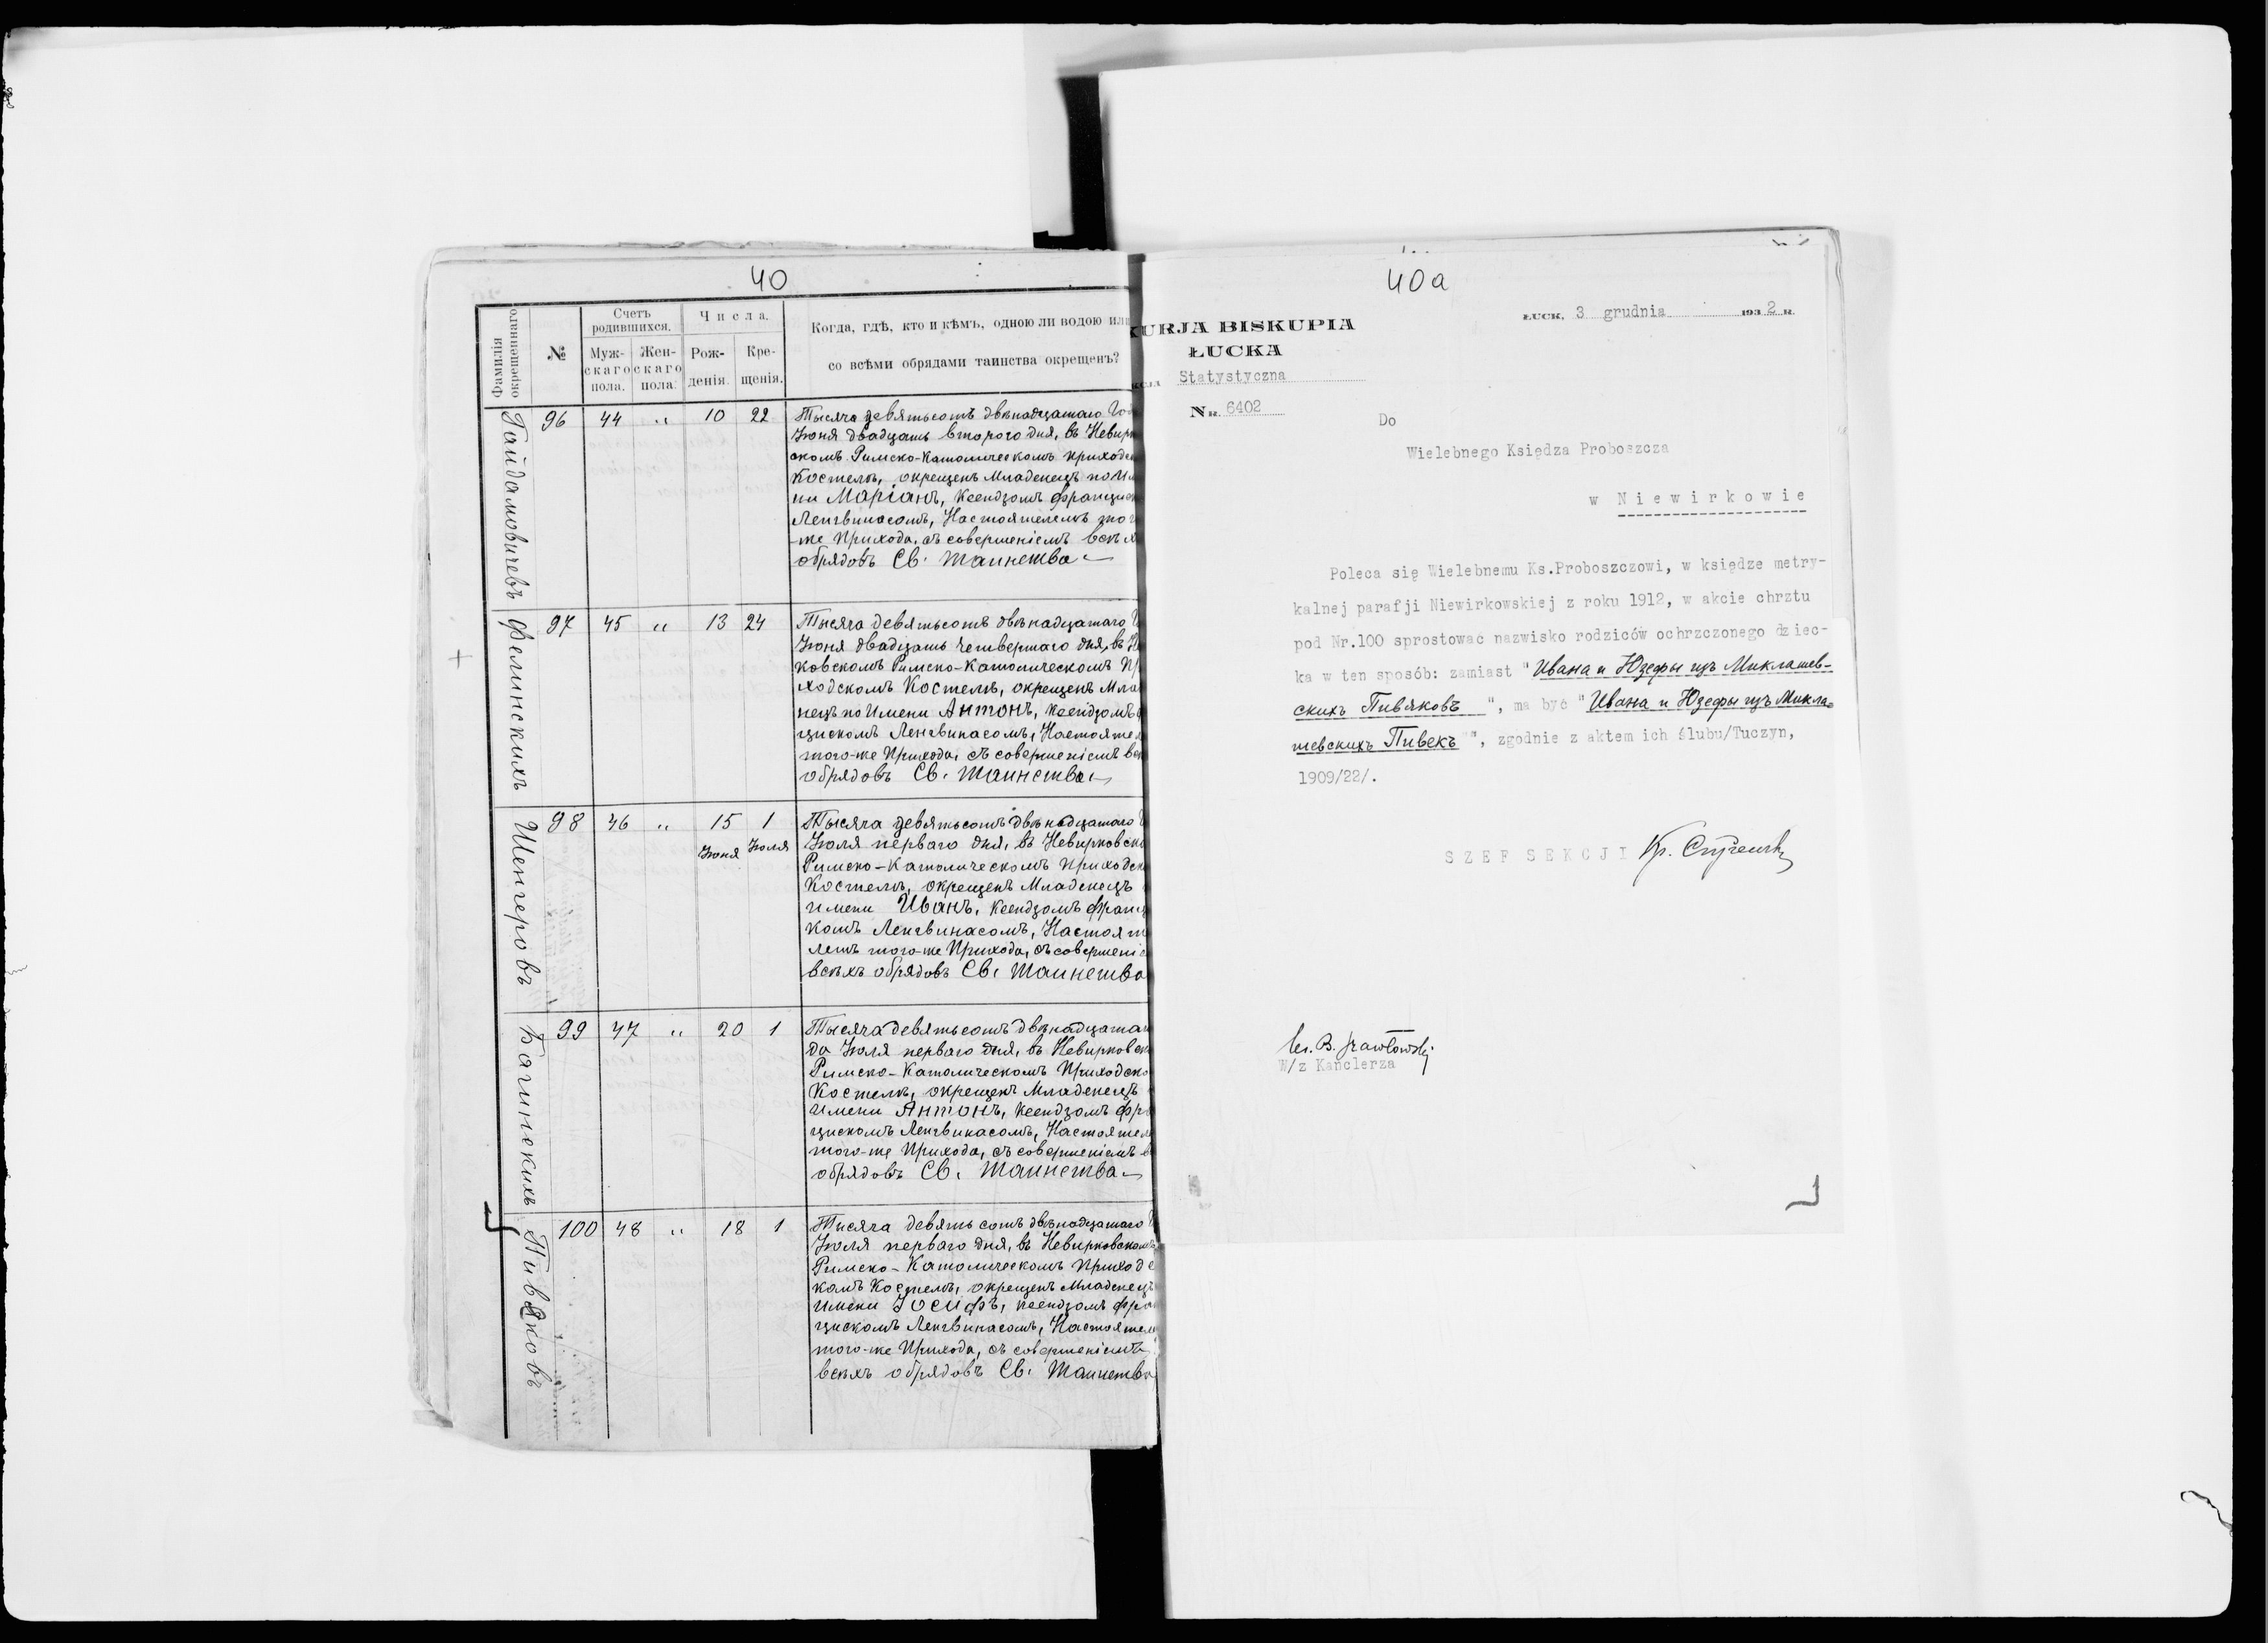 40
Фамилія окрещеннаго.
№
Счетъ родившихся.
Муж-скаго пола.
Жен-скаго пола.
Числа.
Рож-денія.
Кре-щенія.
Когда, гдѣ, кто и кѣмъ, одною ли водою или
со всѣми обрядами таинства окрещенъ?
Гайдамовичевъ
96 44 „ 10 22
Тысяча девятьсотъ двѣнадцатаго
Іюня двадцать второго дня, въ Невирк
скомъ Римско-Католическомъ приходс
Костелѣ, окрещенъ Младенецъ по И
ни Маріанъ, Ксендзомъ Францис
Ленгвинасомъ, Настоятелемъ того
-же Прихода, съ совершеніемъ всѣх
обрядовъ Св. Таинства
Фелинскихъ
97 45 „ 13 24
Тысяча девятьсотъ двѣнадцатаго
Іюня двадцать четвертаго дня, въ Н
ковскомъ Римско-Католическомъ Пр
ходскомъ Костелѣ, окрещенъ Мла
нецъ по Имени Антонъ, Ксендзомъ
цискомъ Ленгвинасомъ, Настояте
того-же Прихода, съ совершеніемъ вс
обрядовъ Св. Таинства
Шенгеровъ
98 46 „ 15 1
Іюня Іюля
Тысяча девятьсотъ двѣнадцатаго
Іюля перваго дня, въ Невирковск
Римско-Католическомъ Приходск
Костелѣ, окрещенъ Младенецъ
имени Иванъ, Ксендзомъ Франц
комъ Ленгвинасомъ, Настоят
лемъ того-же Прихода, съ совершені
всѣхъ обрядовъ Св. Таинства
Багинскихъ
99 47 „ 20 1
Тысяча девятьсотъ двѣнадцатаг
да Іюля перваго дня, въ Невирковск
Римско-Католическомъ Приходско
Костелѣ, окрещенъ Младенецъ
имени Антонъ, Ксендзомъ Фр
цискомъ Ленгвинасомъ, Настояте
того-же Прихода, съ совершеніемъ в
обрядовъ Св. Таинства
Пивяковъ
100 48 „ 18 1
Тысяча девятьсотъ двѣнадцатаго
Іюля перваго дня, въ Невирковскомъ
Римско-Католическомъ Приходс
комъ Костелѣ, окрещенъ Младенецъ
имени Іосифъ, Ксендзомъ Фра
цискомъ Ленгвинасомъ, Настояте
того-же Прихода, съ совершеніемъ
всѣхъ обрядовъ Св. Таинства
40a
ŁUCK, 3 grudnia 1932 R.
KURJA BISKUPIA
ŁUCKA
Statystyczna
NR. 6402
Do
Wielebnego Księdza Proboszcza
w Niewirkowie
Poleca się Wielebnemu Ks.Proboszczowi, w księdze metry-
kalnej parafji Niewirkowskiej z roku 1912, w akcie chrztu
pod Nr.100 sprostować nazwisko rodziców ochrzczonego dziec-
ka w ten sposób: zamiast "Ивана и Юзефы изъ Миклашев-
скихъ Пивяковъ", ma być "Ивана и Юзефы изъ Микла-
шевскихъ Пивекъ"", zgodnie z aktem ich ślubu/Tuczyn,
1909/22/.
SZEF SEKCJI
W/z Kanclerza